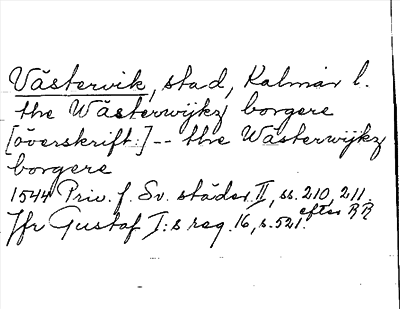 Västervik, stad, Kalmar l.
the Wästerwijkz borgere
[överskrift:] -- the Wästerwijkz
borgere
1544 Priv. f. Sv. städer II, ss. 210, 211.
Jfr Gustaf I:s reg. 16, s. 521. efter RR